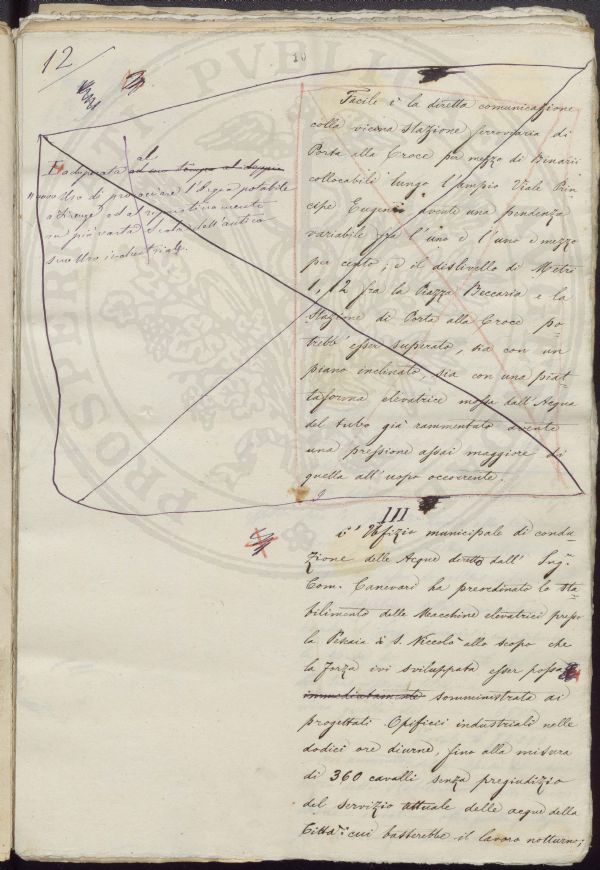 12
10
Facile è la diretta comunicazione
colla vicina Stazione ferroviaria di
Porta alla Croce per mezzo di Binarii
collocabili lungo l'ampio Viale Prin
cipe Eugenio avente una pendenza
variabile fra l'uno e l'uno e mezzo
per cento; e il dislivello di Metri
1,12 fra la Piazza Beccaria e la
Stazione di Porta alla Croce po=
trebb' esser superato, sia con un
piano inclinato, sia con una piat=
taforma elevatrice mossa dall'Acqua
del tubo già rammentato avente
una pressione assai maggiore di
quella all'uopo occorrente.
al
adequata ad uno tempo al
nuovo Uso di provvedere l'Acqua potabile
a Firenze, ed al
più vasta Scala dell'antico
suo Uso industriale.
III
L' Ufizio municipale di condu=
zione delle Acque diretto dall' Ing.
Com. Canevari ha preordinato lo sta=
bilimento delle Macchine elevatrici presso
la Pescaia di S. Niccolò allo scopo che
la forza ivi sviluppata esser possa
immediatamente somministrata ai
progettati Opificii industriali nelle
dodici ore diurne, fino alla misura
di 360 cavalli senza pregiudizio
del servizio attuale delle acque della
Città: cui basterebbe il lavoro notturno;
PROSPERITATI PVBLIC